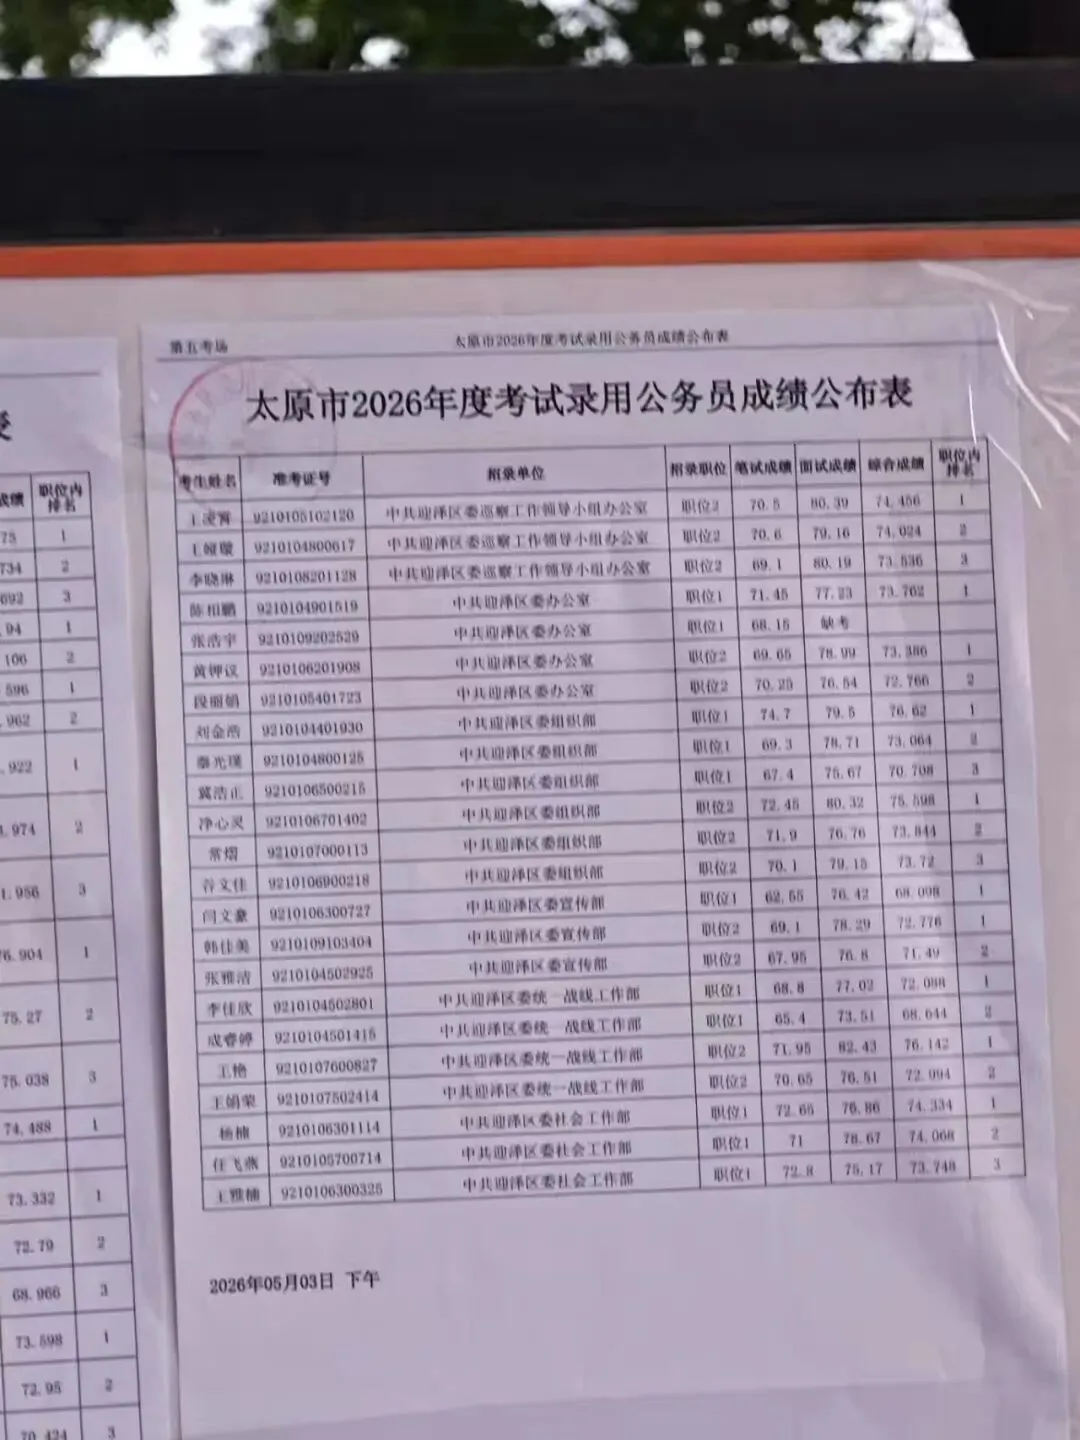 第五考场
太原市2026年度考试录用公务员成绩公布表
太原市2026年度考试录用公务员成绩公布表
考生姓名 准考证号 招录单位 招录职位 笔试成绩 面试成绩 综合成绩 职位内排名
王凌霄 9210105102120 中共迎泽区委巡察工作领导小组办公室 职位2 70.5 80.39 74.456 1
9210104800617 中共迎泽区委巡察工作领导小组办公室 职位2 70.6 79.16 74.024 2
李晓琳 9210108201128 中共迎泽区委巡察工作领导小组办公室 职位2 69.1 80.19 73.536 3
陈相鹏 9210104901519 中共迎泽区委办公室 职位1 71.45 77.23 73.762 1
张浩宇 9210109202529 中共迎泽区委办公室 职位1 68.15 缺考
黄钟议 9210106201908 中共迎泽区委办公室 职位2 69.65 78.99 73.386 1
段丽娟 9210105401723 中共迎泽区委办公室 职位2 70.25 76.54 72.766 2
刘金浩 9210104401930 中共迎泽区委组织部 职位1 74.7 79.5 76.62 1
秦光璞 9210104800125 中共迎泽区委组织部 职位1 69.3 78.71 73.064 2
冀浩正 9210106500215 中共迎泽区委组织部 职位1 67.4 75.67 70.708 3
净心灵 9210106701402 中共迎泽区委组织部 职位2 72.45 80.32 75.598 1
常熠 9210107000113 中共迎泽区委组织部 职位2 71.9 76.76 73.844 2
谷文佳 9210106900218 中共迎泽区委组织部 职位2 70.1 79.15 73.72 3
闫文豪 9210106300727 中共迎泽区委宣传部 职位1 62.55 76.42 68.098 1
韩佳美 9210109103404 中共迎泽区委宣传部 职位2 69.1 78.29 72.776 1
张雅洁 9210104502925 中共迎泽区委宣传部 职位2 67.95 76.8 71.49 2
李佳欣 9210104502801 中共迎泽区委统一战线工作部 职位1 68.8 77.02 72.088 1
成睿婷 9210104501415 中共迎泽区委统一战线工作部 职位1 65.4 73.51 68.644 2
王艳 9210107600827 中共迎泽区委统一战线工作部 职位2 71.95 82.43 76.142 1
王娟荣 9210107502414 中共迎泽区委统一战线工作部 职位2 70.65 76.51 72.994 2
杨楠 9210106301114 中共迎泽区委社会工作部 职位1 72.65 76.86 74.334 1
任飞燕 9210105700714 中共迎泽区委社会工作部 职位1 71 78.67 74.068 2
王雅楠 9210106300325 中共迎泽区委社会工作部 职位1 72.8 75.17 73.748 3
2026年05月03日 下午
成绩 职位内排名
75 1
734 2
692 3
.94 1
106 2
596 1
.962 2
.922 1
.974 2
1.956 3
76.904 1
75.27 2
75.038 3
74.488 1
73.332 1
72.79 2
68.966 3
73.598 1
72.95 2
70.424 3